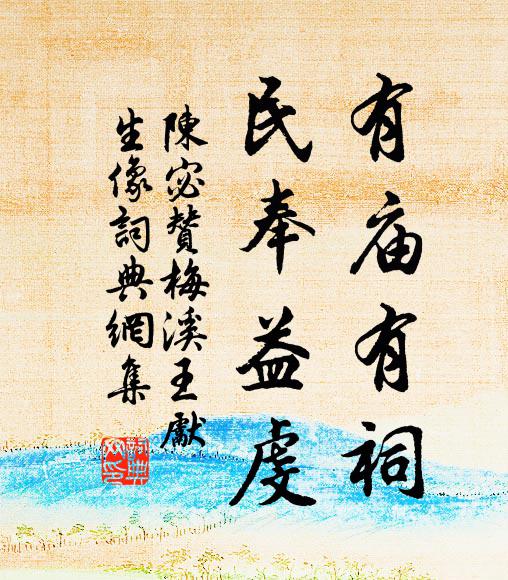 有庙有祠
民奉益虔
陳宓赞梅溪王獻
生像詞典網集